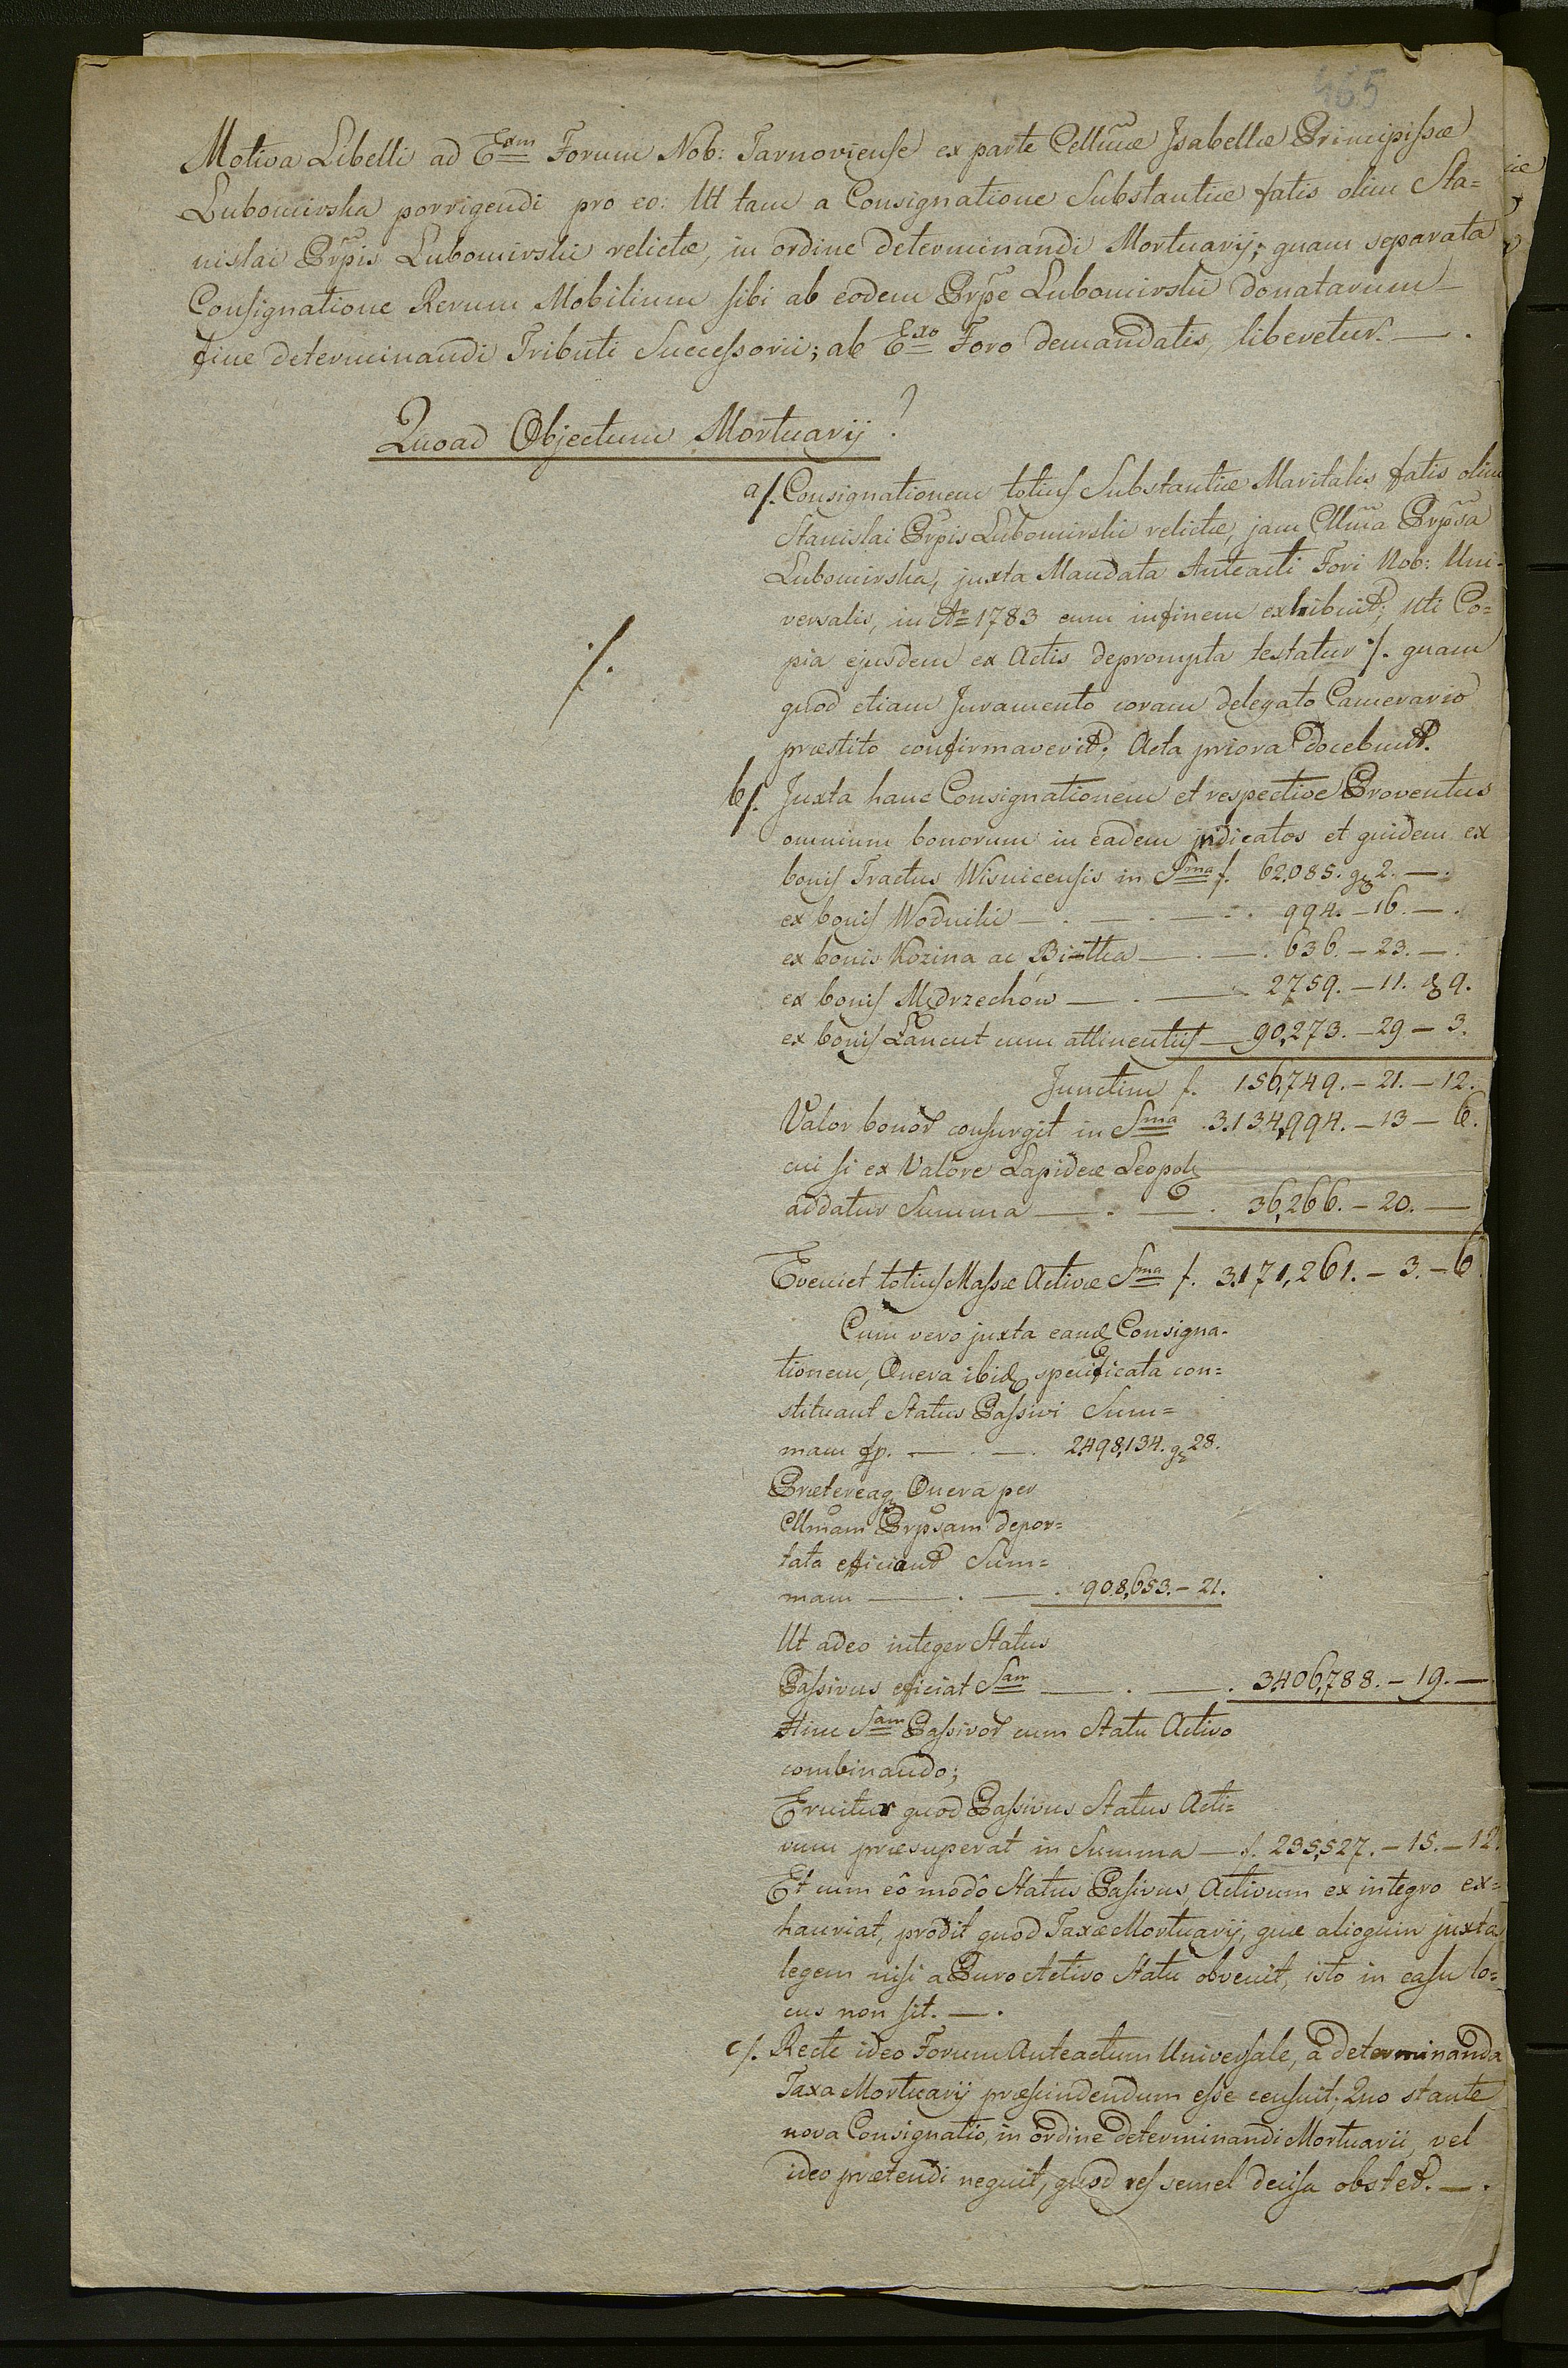 465
Motiva Libelli ad Exm Forum Nob: Tarnoviense ex parte Cellmæ Isabellæ Principissæ
Lubomirska porrigendi pro eo: Ut tam a Consignatione Substantiæ fatis olim Sta=
nislai Prpis Lubomirski relictæ, in ordine determinandi Mortuarij; quam separata
Consignatione Rerum Mobilium sibi ab eodem Prpe Lubomirski donatarum
fine determinandi Tributi Successorii; ab Exo Foro demandatis, liberetur. — .
Quoad Objectum Mortuarij ?
a/. Consignationem totius Substantiæ Maritalis fatis olim
Stanislai Prpis Lubomirski relictæ, jam Cllma Prpsa
Lubomirska, juxta Mandata Anteacti Fori Nob: Uni-
versalis, in Ao 1783 eum infinem exhibuit; uti Co=
pia ejusdem ex Actis deprompta testatur ·/. quam
·/.
quod etiam Juramento coram delegato Camerario
præstito confirmaverit; Acta priora docebunt.
b/. Juxta hanc Consignationem et respective Proventus
omnium bonorum in eadem indicatos et quidem ex
bonis Tractus Wisnicensis in Sma f. 62,085. g 2. — .
ex bonis Wodniki — . — . — . 994. — 16. — .
ex bonis Kozina ac Bittka — . — . 636. — 23. — .
ex bonis Mędrzechów — . — 2759. — 11. ₰ 9.
ex bonis Lancut cum attinentiis — 90,273. — 29 — 3.
Junctim f. 156,749. — 21. — 12.
Valor bonor consurgit in Sma 3,134,994. — 13 — 6.
cui si ex Valore Lapideæ Leopol
addatur Summa — . — . 36,266. — 20. —
Eveniet totius Massæ Activæ Sma f. 3,171,261. — 3. — 6.
Cum vero juxta eand Consigna-
tionem, Onera ibid specificata con=
stituant Status Passivi Sum=
mam fp. — . — . 2,498,134. g 28.
Prætereaq Onera per
Cllmam Prpsam depor=
tata efficiant Sum=
mam — . — . 908,653. — 21.
Ut adeo integer Status
Passivus eficiat Sam — . — . 3,406,788. — 19. —
Hinc Sam Passivor cum Statu Activo
combinando;
Eruitur quod Passivus Status Acti=
vum præsuperat in Summa — f. 235,527. — 15. — 12.
Et cum eô modô Status Pasivus, Activum ex integro ex=
hauriat, prodit quod Taxæ Mortuarij, quæ alioquin juxta
legem nisi a Puro Activo Statu obvenit, isto in casu lo=
cus non sit. — .
c/. Recte ideo Forum Anteactum Universale, a determinanda
Taxa Mortuarij præscindendum esse censuit; Quo stante
nova Consignatio, in ordine determinandi Mortuarii, vel
ideo prætendi nequit, quod res semel decisa obstet. — .